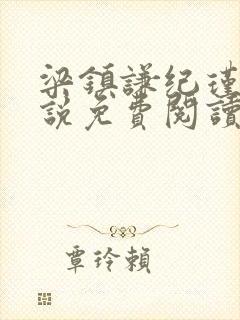 梁鎮謙纪瑾
說免費閱讀
覃玲賴